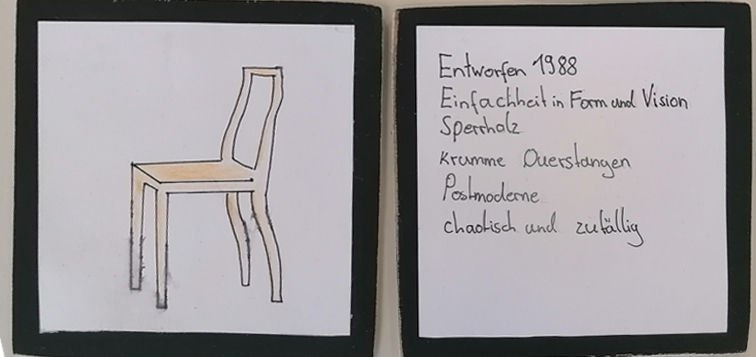 Entworfen 1988
Einfachheit in Form und Vision
Sperrholz
Krumme Querstangen
Postmoderne
chaotisch und zufällig